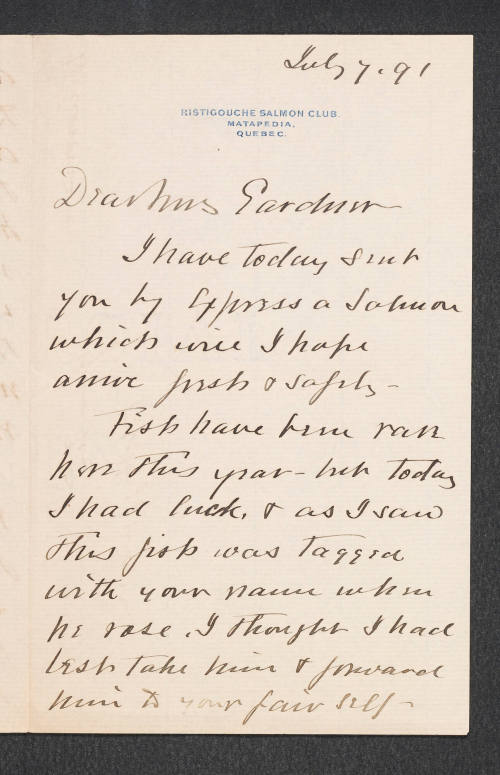 July 7. 91
RISTIGOUCHE SALMON CLUB.
MATAPEDIA,
QUEBEC.
Dear Mrs Gardner
I have today sent
you by Express a Salmon
which will I hope
arrive fresh & safely -
Fish have been rare
here this year - but today
I had luck, & as I saw
this fish was tagged
with your name when
he rose, I thought I had
best take him & forward
him to your fair self -